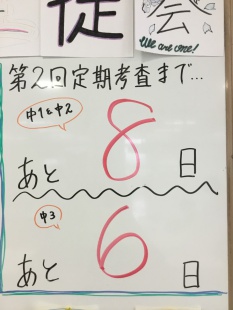 徒
会
We are one!
第2回定期考査まで...
中1&中2
あと 8 日
中3
あと 6 日